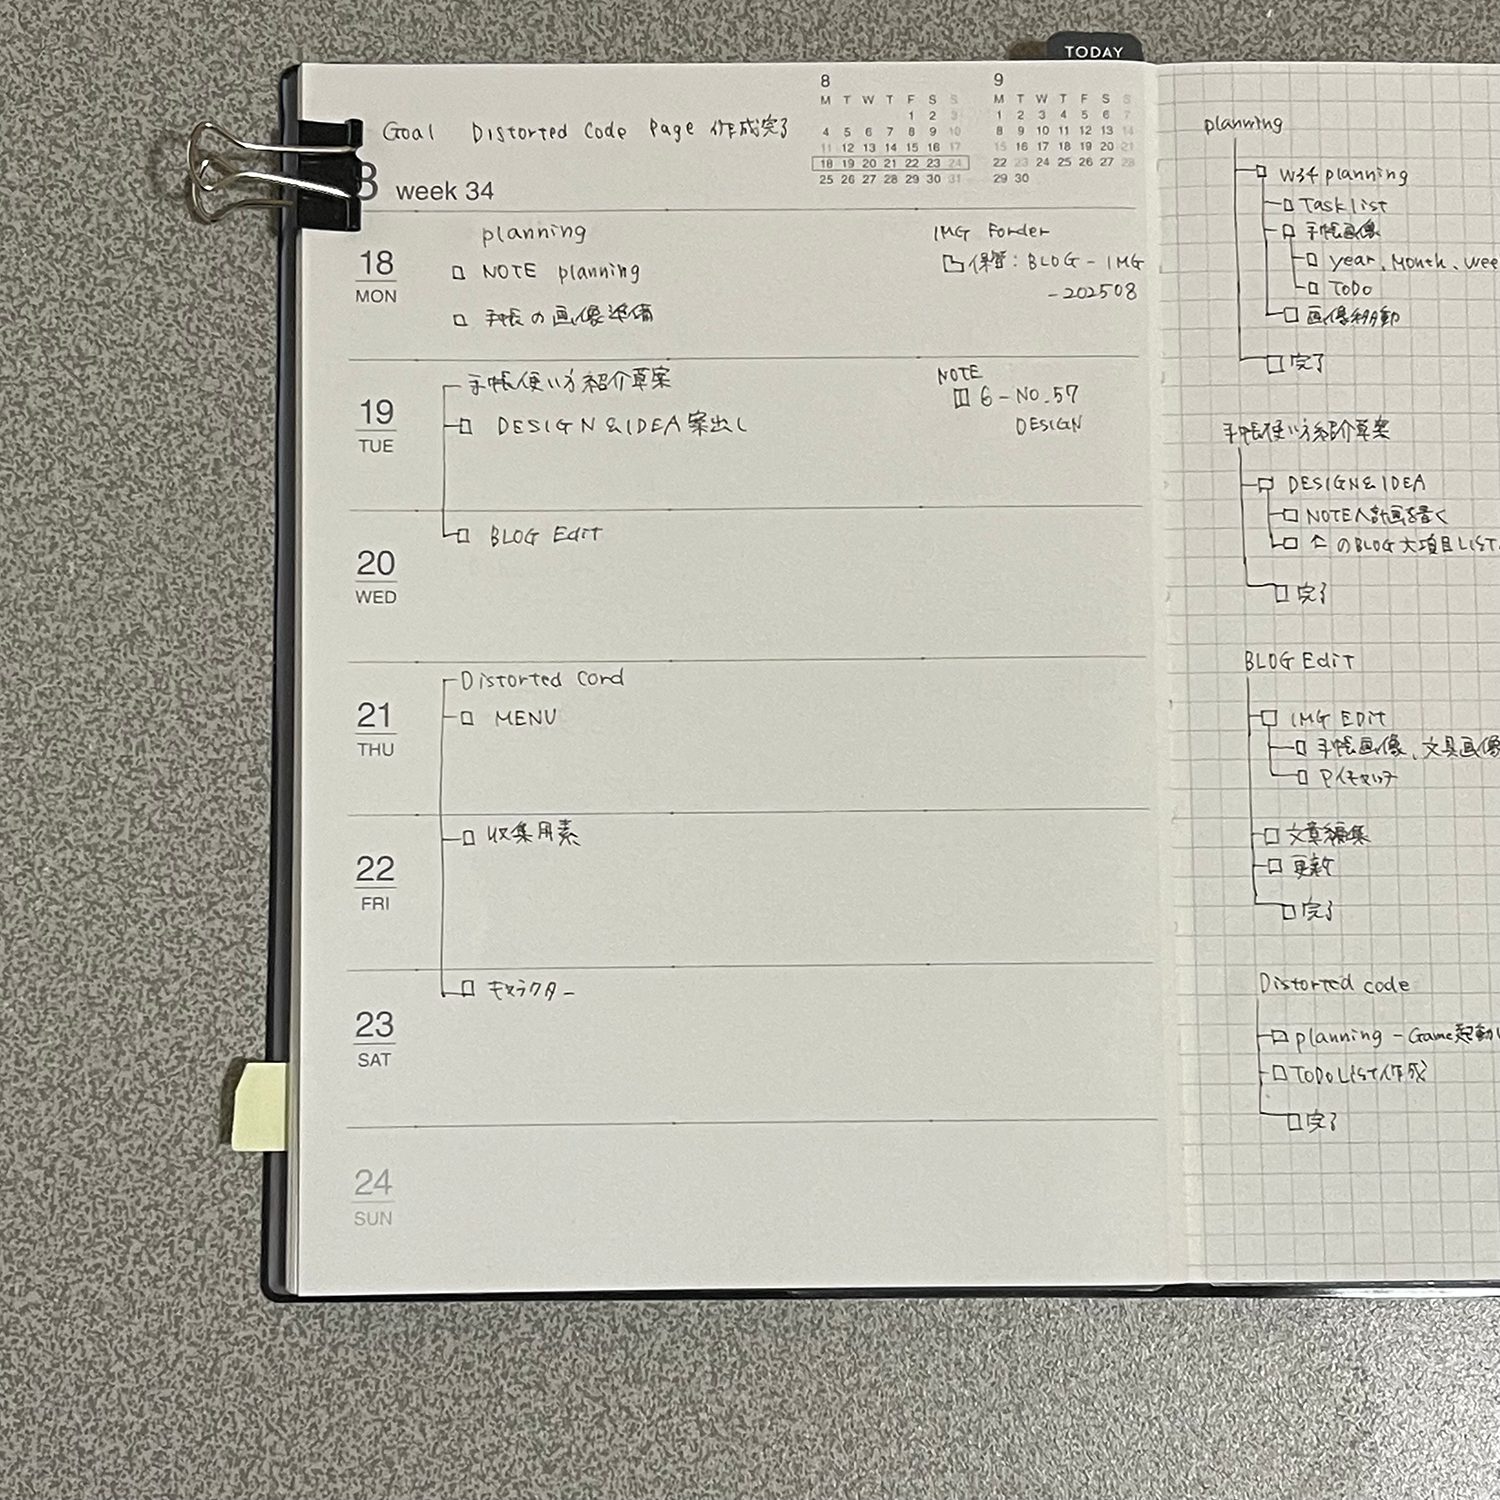 TODAY
Goal Distorted Code Page 作成完了
8
M T W T F S S
1 2 3
4 5 6 7 8 9 10
11 12 13 14 15 16 17
18 19 20 21 22 23 24
25 26 27 28 29 30 31
9
M T W T F S S
1 2 3 4 5 6 7
8 9 10 11 12 13 14
15 16 17 18 19 20 21
22 23 24 25 26 27 28
29 30
8 week 34
18
MON
planning
NOTE planning
手帳の画像準備
IMG Forder
保管:BLOG-IMG
-202508
19
TUE
手帳使い方紹介草案
DESIGN&IDEA案出し
NOTE
6-NO.57
DESIGN
20
WED
BLOG Edit
21
THU
Distorted Cord
MENU
22
FRI
収集用素
23
SAT
キャラクター
24
SUN
planning
W34 planning
Task list
手帳画像
year、Month、wee
ToDo
画像移動
完了
手帳使い方紹介草案
DESIGN&IDEA
NOTEへ計画を書く
のBLOG大項目LIST
完了
BLOG Edit
IMG EDIT
手帳画像、文具画像
アイキャッチ
文章編集
更新
完了
Distorted code
planning-Game起動
ToDoList作成
完了